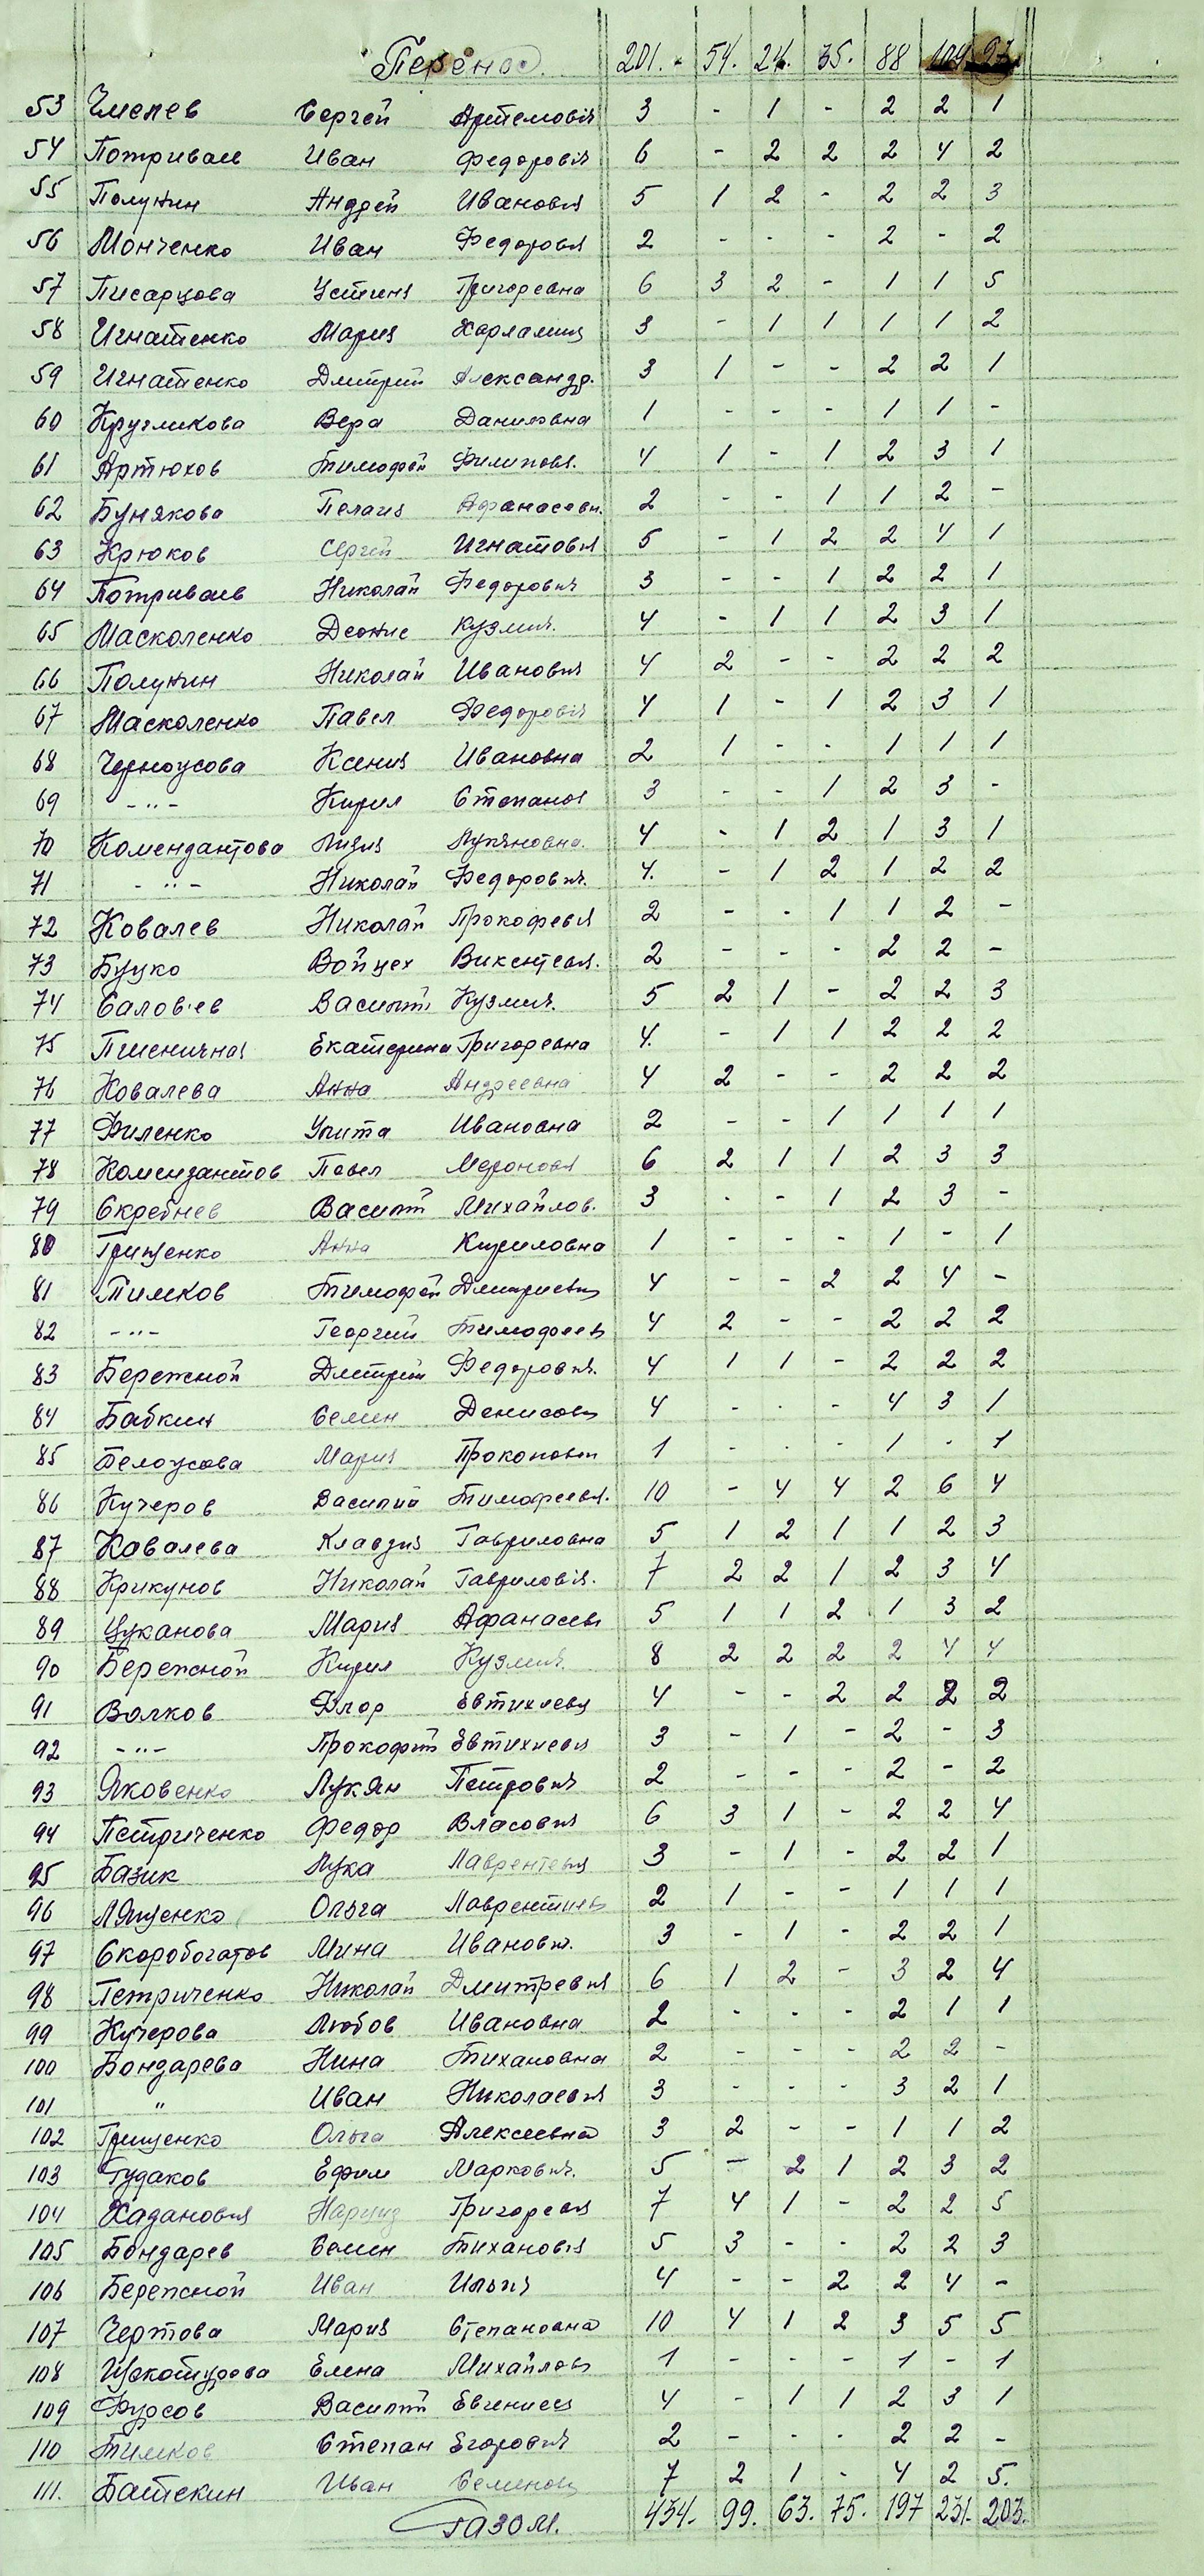 Перенос. 201. 54. 24. 35. 88 109 97
53 Чмелев Сергей Артемович 3 - 1 - 2 2 1
54 Потриваев Иван Федорович 6 - 2 2 2 4 2
55 Полунин Андрей Иванович 5 1 2 - 2 2 3
56 Монченко Иван Федорович 2 - - - 2 - 2
57 Писарцова Устиния Григоревна 6 3 2 - 1 1 5
58 Игнатенко Мария Харлампия 3 - 1 1 1 1 2
59 Игнатенко Дмитрий Александр. 3 1 - - 2 2 1
60 Кругликова Вера Даниловна 1 - - - 1 1 -
61 Артюхов Тимофей Филипович. 4 1 - 1 2 3 1
62 Бунякова Пелагия Афанасевн. 2 - - 1 1 2 -
63 Крюков Сергей Игнатович 5 - 1 2 2 4 1
64 Потриваев Николай Федорович 3 - - 1 2 2 1
65 Масколенко Деонис Кузмич. 4 - 1 1 2 3 1
66 Полунин Николай Иванович 4 2 - - 2 2 2
67 Масколенко Павел Федорович 4 1 - 1 2 3 1
68 Черноусова Ксения Ивановна 2 1 - - 1 1 1
69 -"- Кирил Степанов 3 - - 1 2 3 -
70 Комендантова Лизия Лукяновна. 4 - 1 2 1 3 1
71 -"- Николай Федорович. 4. - 1 2 1 2 2
72 Ковалев Николай Прокофевич 2 - - 1 1 2 -
73 Буцко Войцех Викентевич. 2 - - - 2 2 -
74 Саловьев Василий Кузмич. 5 2 1 - 2 2 3
75 Пшеничная Екатерина Григоревна 4. - 1 1 2 2 2
76 Ковалева Анна Андреевна 4 2 - - 2 2 2
77 Филенко Улита Ивановна 2 - - 1 1 1 1
78 Комендантов Павел Меронович 6 2 1 1 2 3 3
79 Скребнев Василий Михайлов. 3 - - 1 2 3 -
80 Грищенко Анна Кириловна 1 - - - 1 - 1
81 Тимков Тимофей Дмитриевич 4 - - 2 2 4 -
82 -"- Георгий Тимофеев 4 2 - - 2 2 2
83 Бережной Дмитрий Федорович. 4 1 1 - 2 2 2
84 Бабкин Семен Денисович 4 - - - 4 3 1
85 Белоусова Мария Прокоповн 1 - - - 1 - 1
86 Кучеров Василий Тимофеевич. 10 - 4 4 2 6 4
87 Ковалева Клавдия Гавриловна 5 1 2 1 1 2 3
88 Крикунов Николай Гаврилович. 7 2 2 1 2 3 4
89 Цуканова Мария Афанасев 5 1 1 2 1 3 2
90 Бережной Кирил Кузмич. 8 2 2 2 2 4 4
91 Волков Флор Евтихиевич 4 - - 2 2 2 2
92 -"- Прокофий Евтихиевич 3 - 1 - 2 - 3
93 Яковенко Лукян Петрович 2 - - - 2 - 2
94 Петриченко Федор Власович 6 3 1 - 2 2 4
95 Базик Лука Лаврентевич 3 - 1 - 2 2 1
96 Лященко Ольга Лаврентиев 2 1 - - 1 1 1
97 Скоробогатов Мина Иванович. 3 - 1 - 2 2 1
98 Петриченко Николай Дмитревич 6 1 2 - 3 2 4
99 Кучерова Любов Ивановна 2 - - - 2 1 1
100 Бондарева Нина Тихановна 2 - - - 2 2 -
101 " Иван Николаевич 3 - - - 3 2 1
102 Грищенко Ольга Алексеевна 3 2 - - 1 1 2
103 Гудаков Ефим Маркович. 5 - 2 1 2 3 2
104 Хаданович Нарциз Григоревич 7 4 1 - 2 2 5
105 Бондарев Семен Тиханович 5 3 - - 2 2 3
106 Бережной Иван Ильич 4 - - 2 2 4 -
107 Чертова Мария Степановна 10 4 1 2 3 5 5
108 Елена Михайлов 1 - - - 1 - 1
109 Фурсов Василий Евгениев 4 - 1 1 2 3 1
110 Тимков Степан Егорович 2 - - - 2 2 -
111. Батекин Иван Семенович 7 2 1 - 4 2 5.
Газом. 434. 99. 63. 75. 197 231. 203.